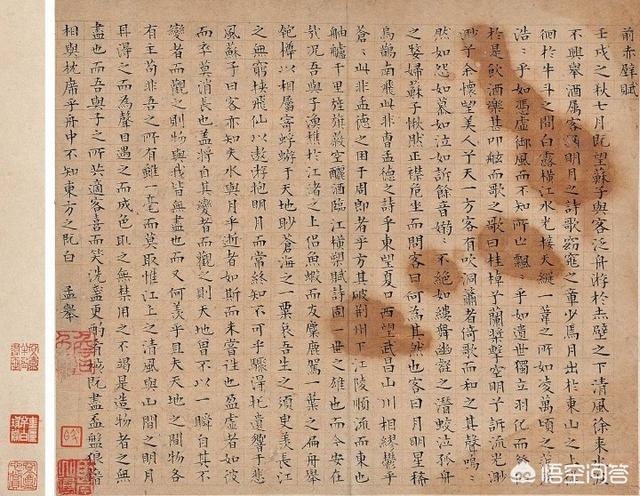 前赤壁賦
壬戌之秋七月既望蘇子與客泛舟游於赤壁之下清風徐來水
不興舉酒属客誦明月之詩歌窈窕之章少焉月出於東山之上
徊於牛斗之間白露橫江水光接天縱一葦之所如凌萬頃之茫
浩〻乎如馮虛御風而不知所止飄〻乎如遺世獨立羽化而登
於是飲酒樂甚叩舷而歌之歌曰桂棹兮蘭槳擊空明兮訴流光渺
渺兮余懷望美人兮天一方客有吹洞簫者倚歌而和之其聲嗚〻
然如怨如慕如泣如訴餘音嫋〻不絕如縷舞幽壑之潛蛟泣孤舟
之嫠婦蘇子愀然正襟危坐而問客曰何為其然也客曰月明星稀
烏鵲南飛此非曹孟德之詩乎東望夏口西望武昌山川相繆鬱乎
蒼〻此非孟德之困于周郎者乎方其破荊州下江陵順流而東也
舳艫千里旌旗蔽空釃酒臨江橫槊賦詩固一世之雄也而今安在
哉況吾與子漁樵於江渚之上侶魚蝦而友麋鹿駕一葉之扁舟舉
匏樽以相屬寄蜉蝣于天地眇蒼海之一粟哀吾生之須臾羨長江
之無窮挾飛仙以遨游抱明月而常終知不可乎驟得托遺響于悲
風蘇子曰客亦知夫水與月乎逝者如斯而未嘗往也盈虛者如彼
而卒莫消長也蓋將自其變者而觀之則天地曾不以一瞬自其不
變者而觀之則物與我皆無盡也而又何羨乎且夫天地之間物各
有主苟非吾之所有雖一毫而莫取惟江上之清風與山間之明月
耳得之而為聲目遇之而成色取之無禁用之不竭是造物者之無
盡也而吾與子之所共適客喜而笑洗盞更酌肴核既盡盃盤狼籍
相與枕席乎舟中不知東方之既白 孟舉
悟空问答